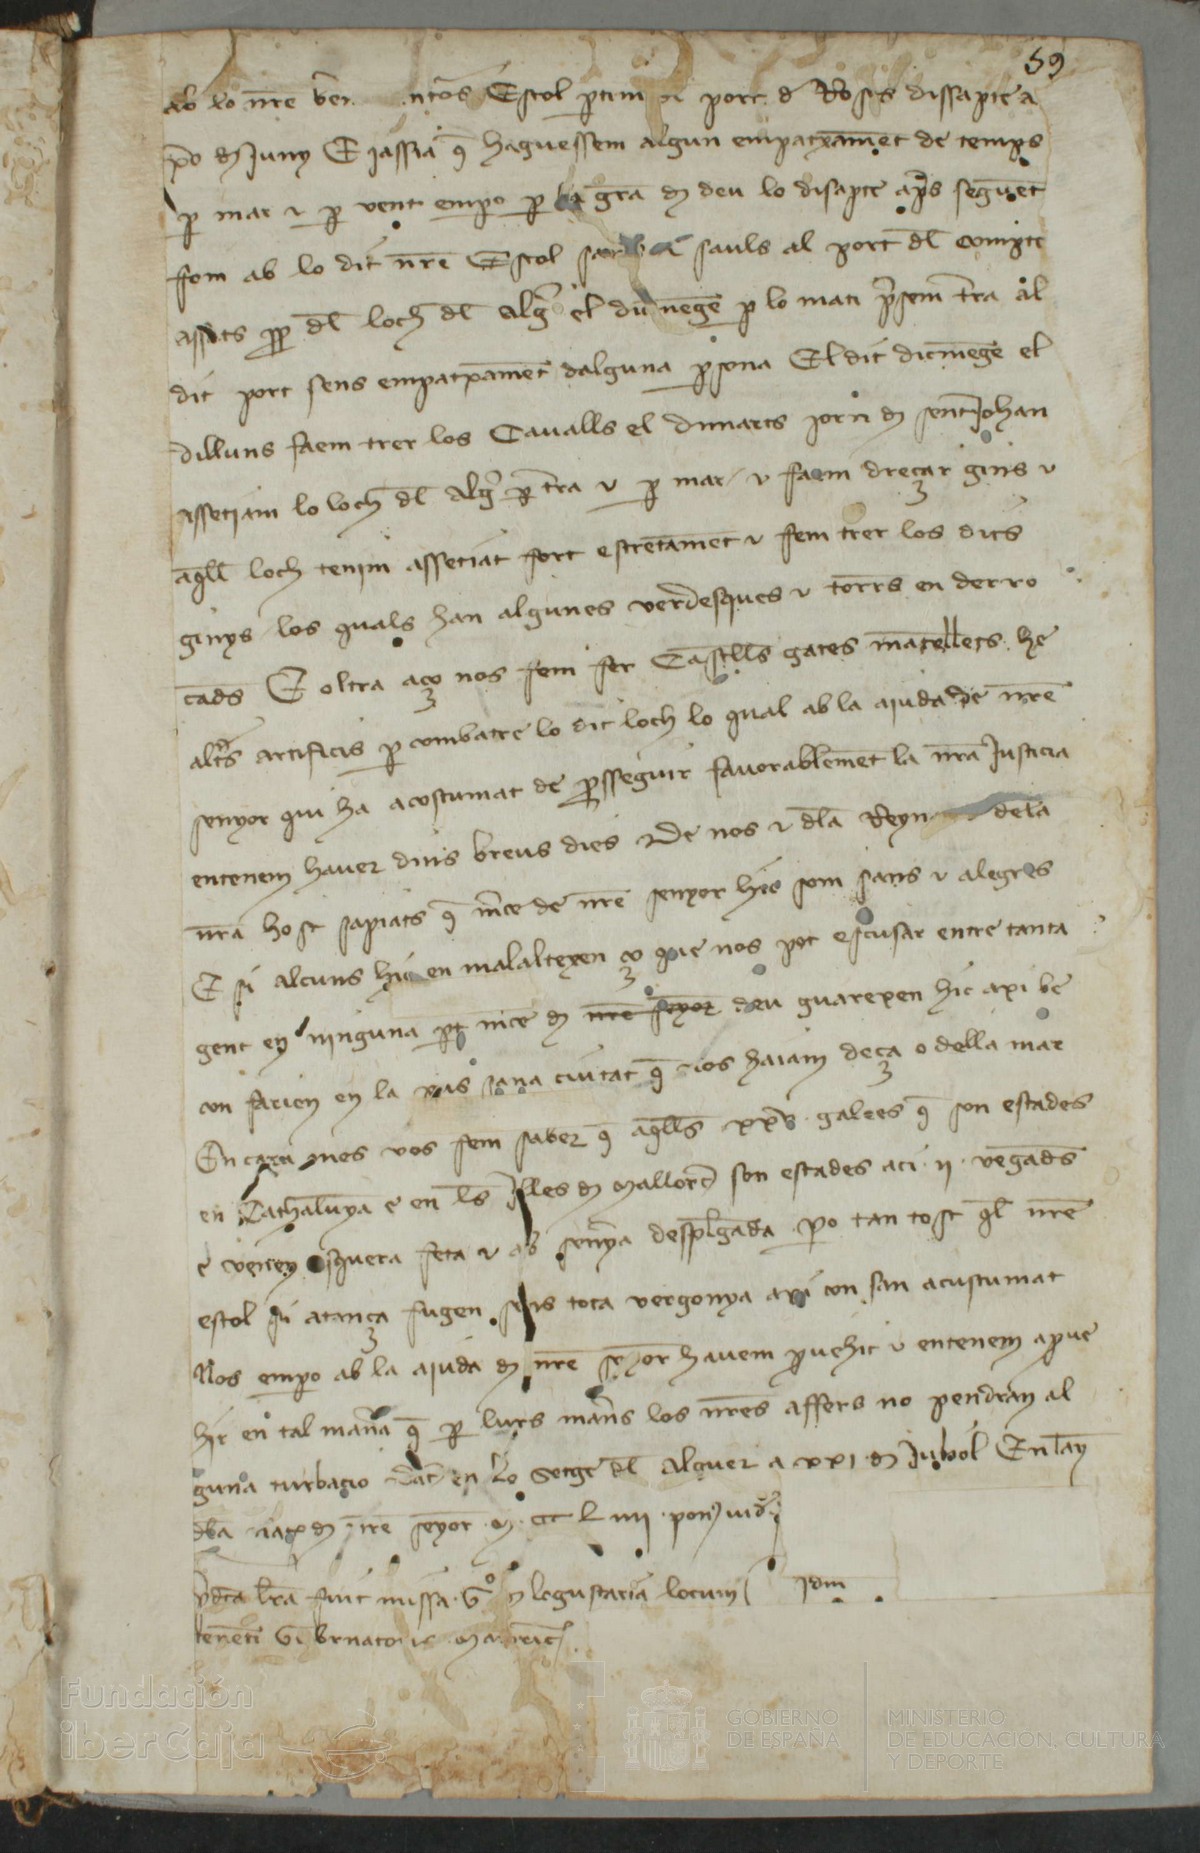 59
ab lo nr̄e Estol ptim port d Roses dissapte a
de Juny E iassia q̄ haguessem algun empatxamēt de temps
p mar e p vent empo p la grā d deu lo disapte ap̄s seguēt
fom ab lo dit nr̄e Estol sauls al port dl̄ compte
assats pp dl̄ loch dl̄ Alg̃ el diumēge p lo mati p̄sem t̄ra al
dit port sens empatxamēt dalguna p̄sona El dit dicmēge el
dilluns faem trer los Cavalls el dimarts jorn d sent Johan
assetiam lo loch dl̄ Alg̃ p t̄ra e p mar e faem dreçar ginis e
aq̄ll loch tenim assetiat fort estretamēt e fem trer los dits
ginys los quals han algunes verdesques e torrs en derro
cads E oltra aço nos fem fer Castells gates mātellets he
alt̄s artificis p combatre lo dit loch lo qual ab la aiuda de nr̄e
senyor qui ha acostumat de p̄sseguir favorablemēt la nr̄a Justicia
entenem haver dins breus dies De nos e dla Reyn dela
nr̄a host sapiats q̄ m̄ce de nr̄e senyor hic som sans e alegres
E si alcuns hic en malaltexen ço que nos pot escusar entre tanta
gent en ninguna pt m̄ce d nr̄e seyor deu guarexen hic axi be
con farien en la pus sana ciutat q̄ nos haiam deça o della mar
En cara mes vos fem saber q̄ aq̄lls xxv galees q̄ son estades
en Cathalunya e en l̄s Illes d Mallorc̄ son estades aci ii vegads
e venen esquera feta e ab senya desplegada po tan tost q̄l nr̄e
estol si atança fugen sens tota vergonya axi con san acustumat
Nos empo ab la aiuda d nr̄e senyor havem p̄vehit e entenem a p̄ve
hir en tal man̄a q̄ p lurs man̄s los nr̄es affers no pendran al
guna turbacio Dat en lo Setge dl̄ Alguer a xxi d Juliol En lay
dla nat d nr̄e seyor M CCC L iiii
p̄dc̄a lr̄a fuit missa G° locum Idm
tenēti Gubernatoris Maioric̄
Fundación
iberCaja
GOBIERNO
DE ESPAÑA
MINISTERIO
DE EDUCACIÓN, CULTURA
Y DEPORTE